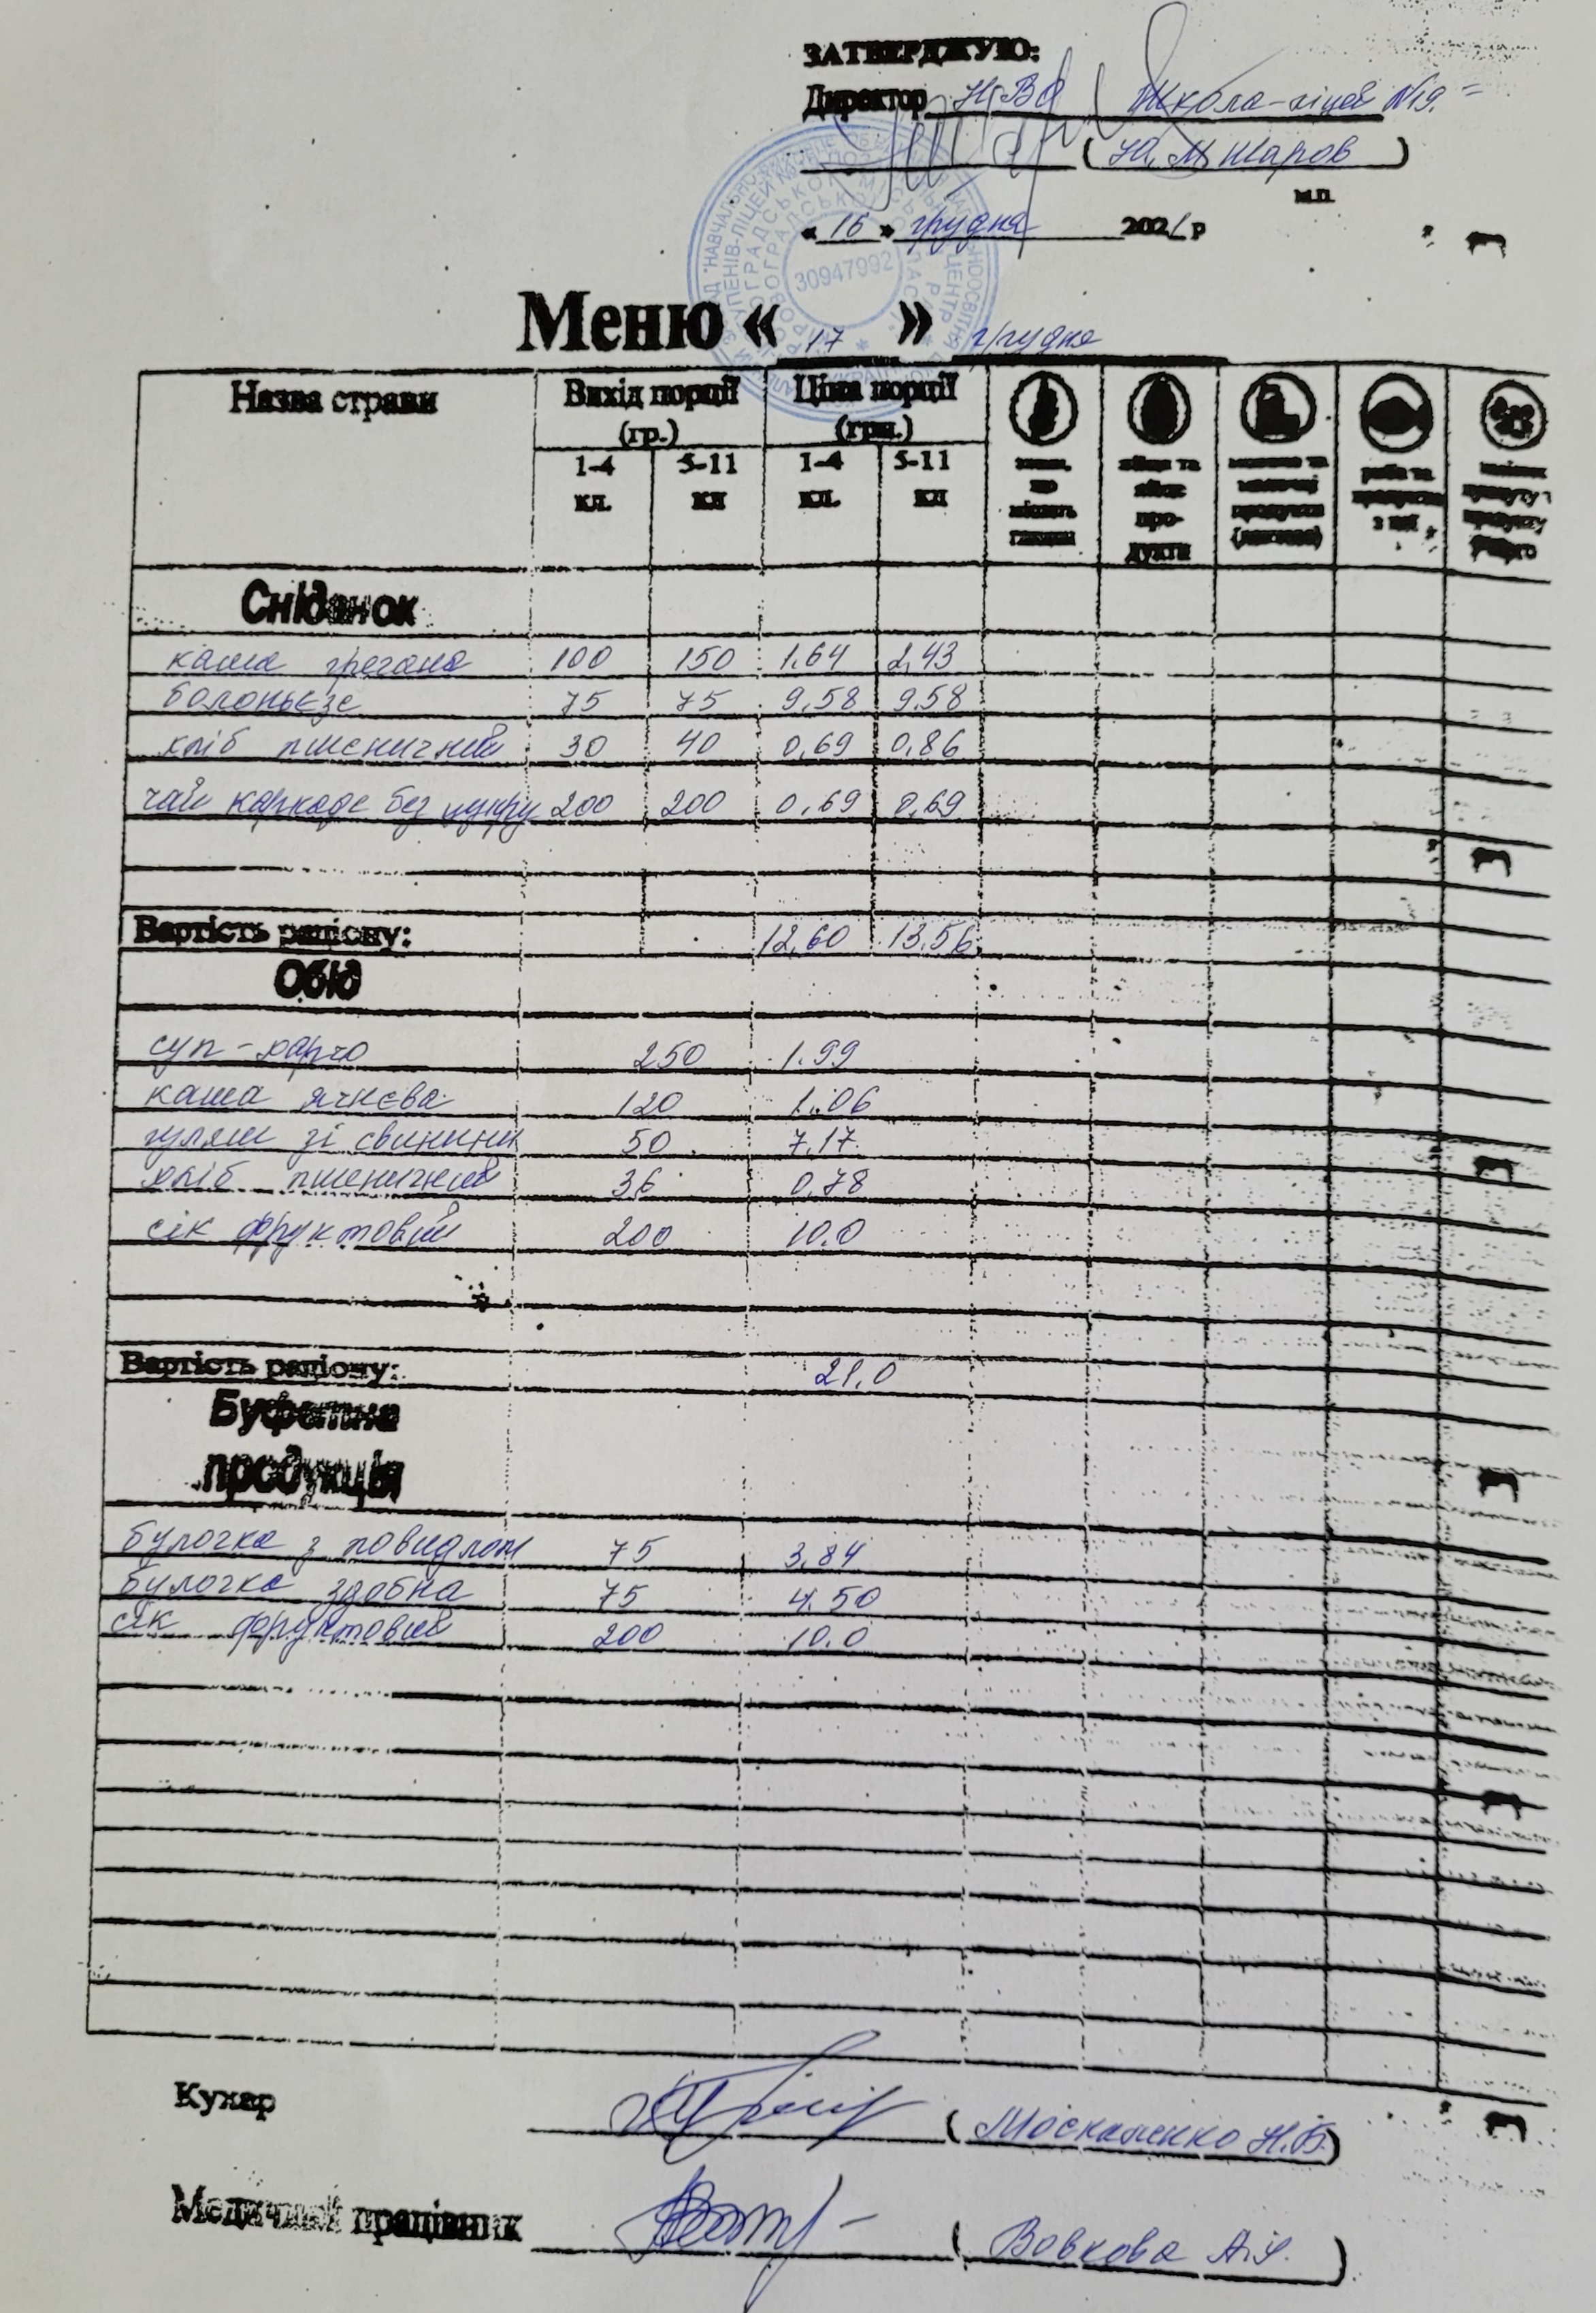 ЗАТВЕРДЖУЮ:
Директор НВО Школа-ліцей №19
(Ю.М. Жаров)
м.п.
« 16 » грудня 2021 р
30947992
Меню « 17 » грудня
Назва страви Вихід порції (гр.) Ціна порції (грн.)
1-4 кл. 5-11 кл 1-4 кл. 5-11 кл
яйця та яйце про-дукти
риба та продукти з неї
Сніданок
каша гречана 100 150 1.64 2,43
болоньєзе 75 75 9,58 9,58
хліб пшеничний 30 40 0,69 0,86
чай каркаде без цукру 200 200 0,69 0,69
Вартість раціону: 12,60 13,56
Обід
суп-харчо 250 1.99
каша ячнєва 120 1.06
гуляш зі свинини 50 7,17
хліб пшеничний 36 0,78
сік фруктовий 200 10.0
Вартість раціону: 21,0
Буфетна
продукція
булочка з повидлом 75 3,84
булочка здобна 75 4.50
сік фруктовий 200 10.0
Кухар (Москаленко Н.Б.)
Медичний працівник (Вовкова А.Я.)